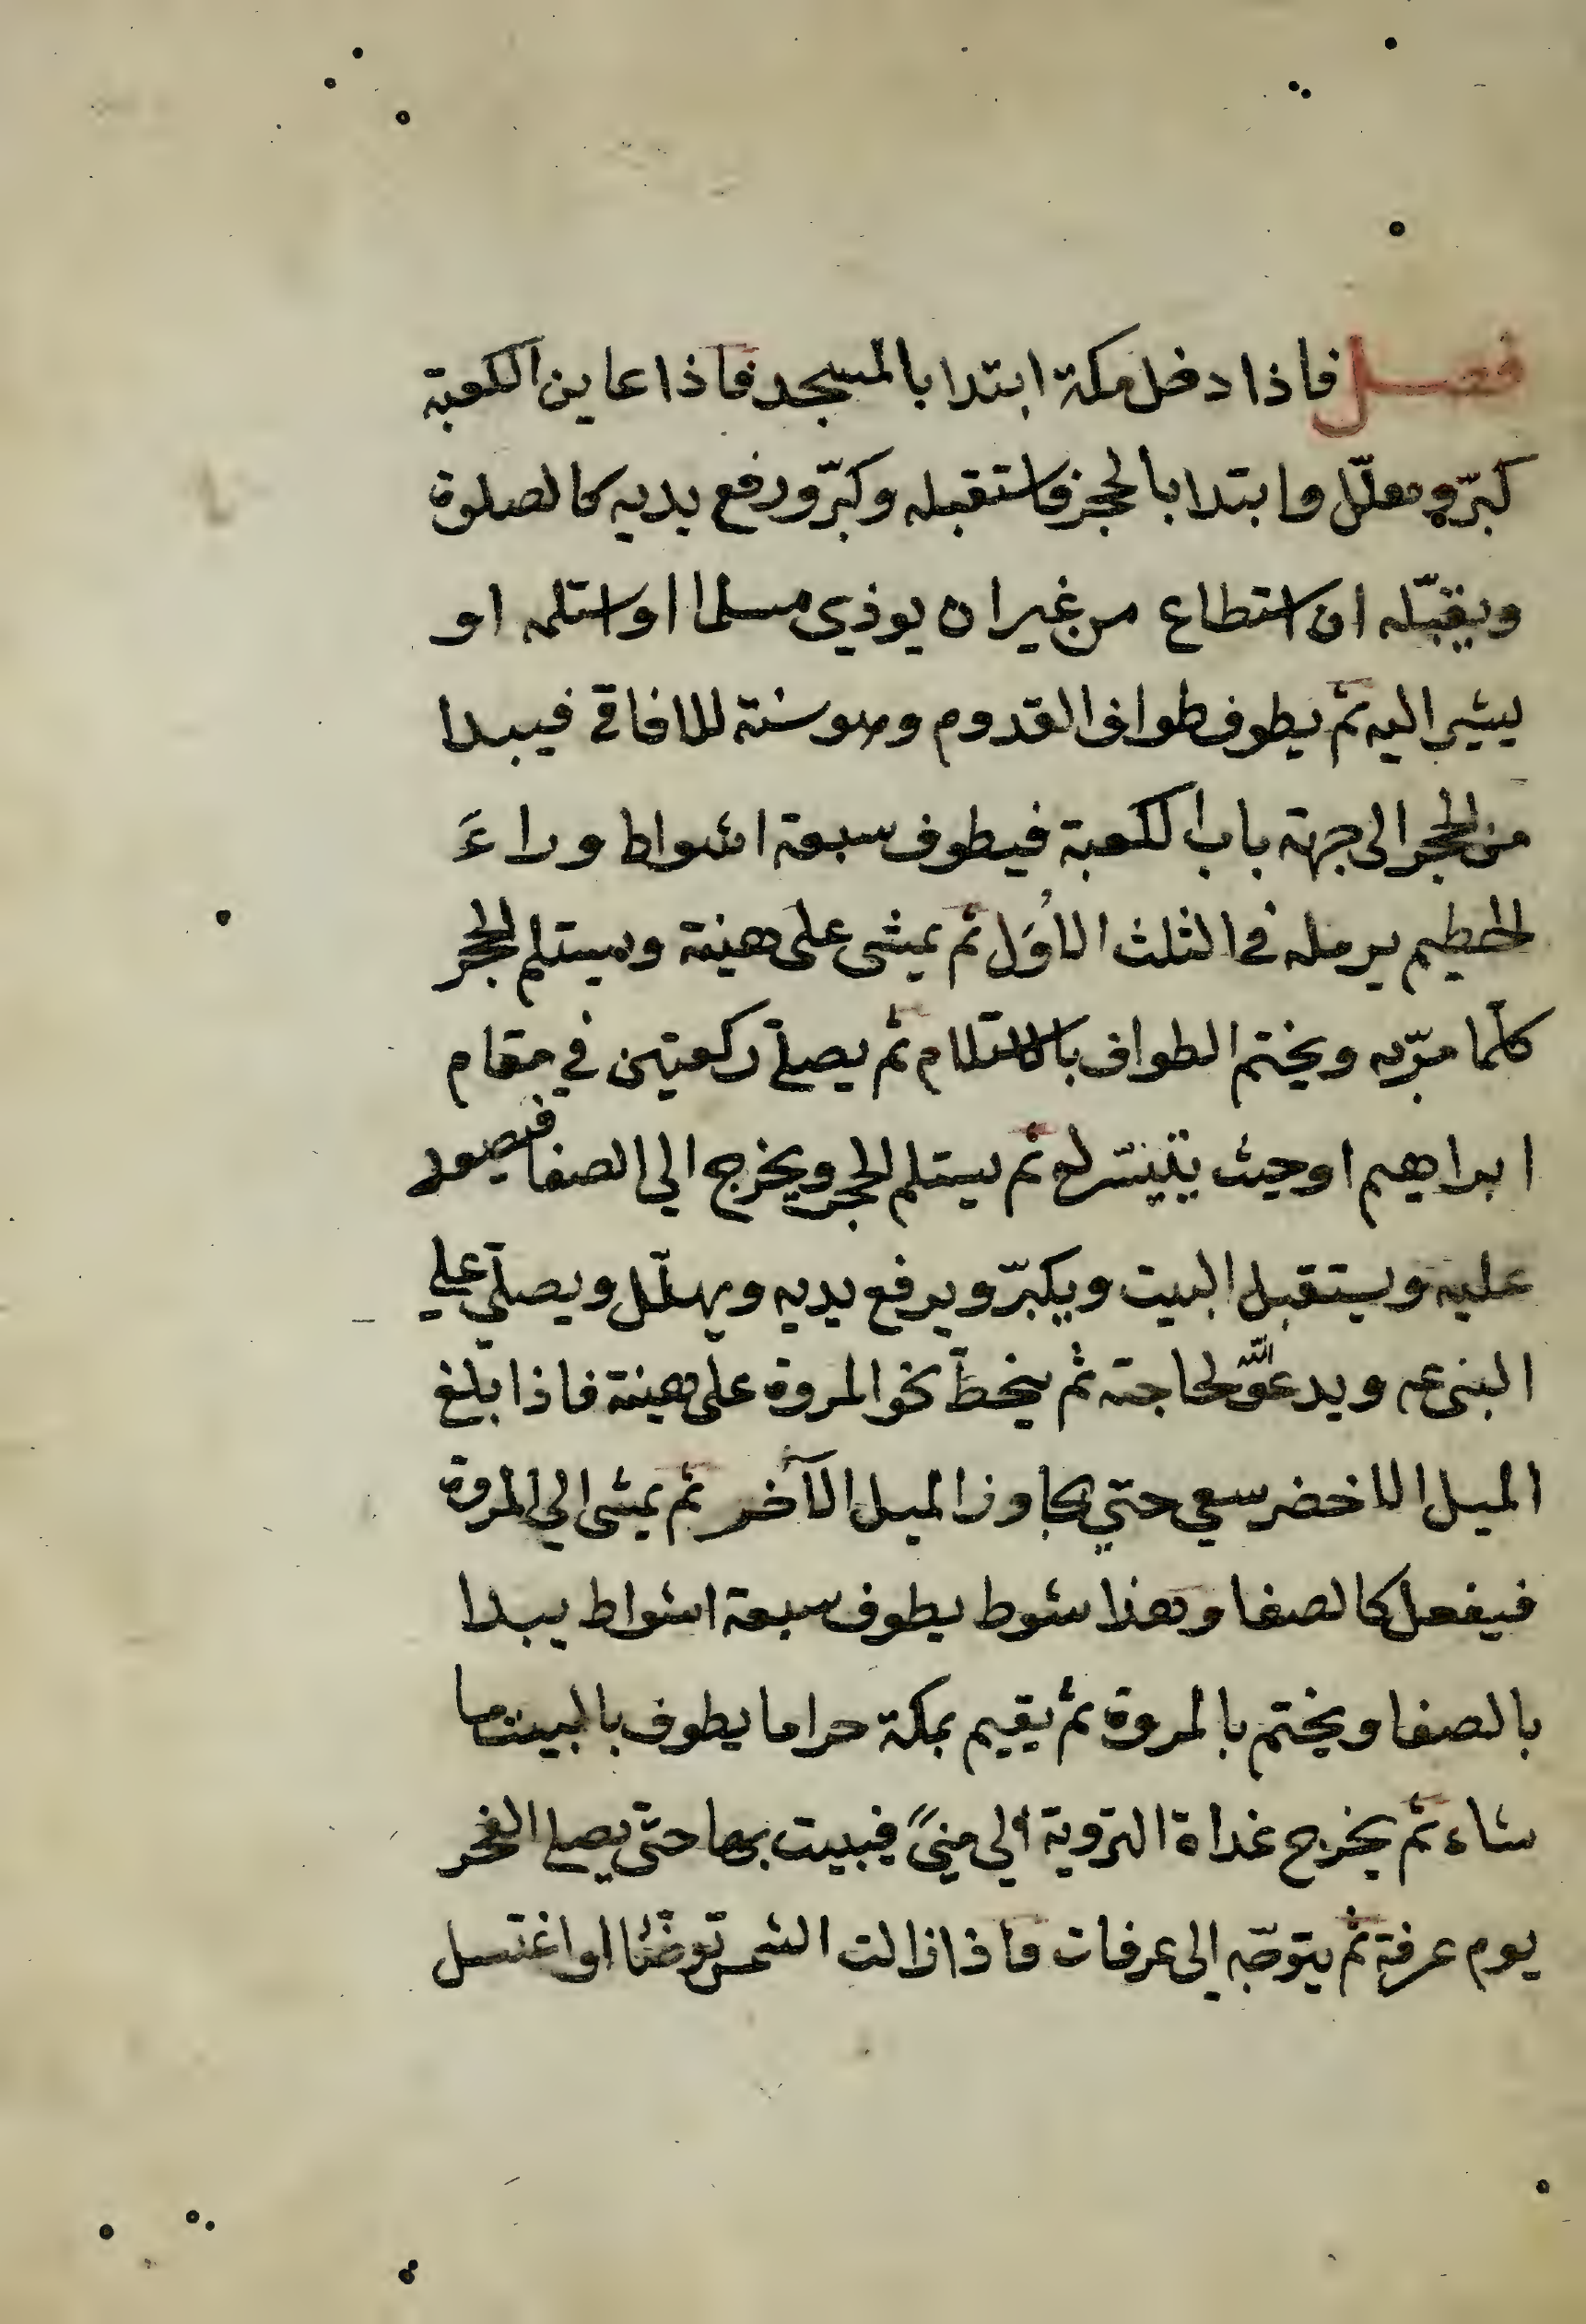 فصل فاذا دخل مكة ابتدا بالمسجد فاذا عاين الكعبة
كبّر وهلّل وابتدا بالحجر فاستقبله وكبّر ورفع يديه كالصلوة
ويقبّله ان استطاع من غير ان يوذي مسلما او استلمه او
يشير اليه ثم يطوف طواف القدوم وهو سنة للافاقي فيبدا
من الحجر الى جهة باب الكعبة فيطوف سبعة اشواط وراءَ
الحطيم يرمل في الثلث الاُوَل ثم يمشى على هينة ويستلم الحجر
كلّما مرّ به ويختم الطواف بالاستلام ثم يصلّي ركعتين في مقام
ابراهيم او حيث يتيسّر له ثم يستلم الحجر ويخرج الي الصفا فيصعد
عليه ويستقبل البيت ويكبّر ويرفع يديه ويهلّل ويصلّي علي
النبي عم ويدعو اللّه لحاجته ثم ينحطّ نحو المروة على هينة فاذا بلغ
الميل الاخضر سعي حتي يجاوز الميل الآخر ثم يمشى الي المروة
فيفعل كالصفا وهذا شوط يطوف سبعة اشواط يبدا
بالصفا ويختم بالمروة ثم يقيم بمكة حراما يطوف بالبيت ما
شاء ثم يخرج غداة التروية الي منيً فيبيت بها حتّى يصلي الفجر
يوم عرفة ثم يتوجّه الى عرفات فاذا زالت الشمس توضّأ او اغتسل